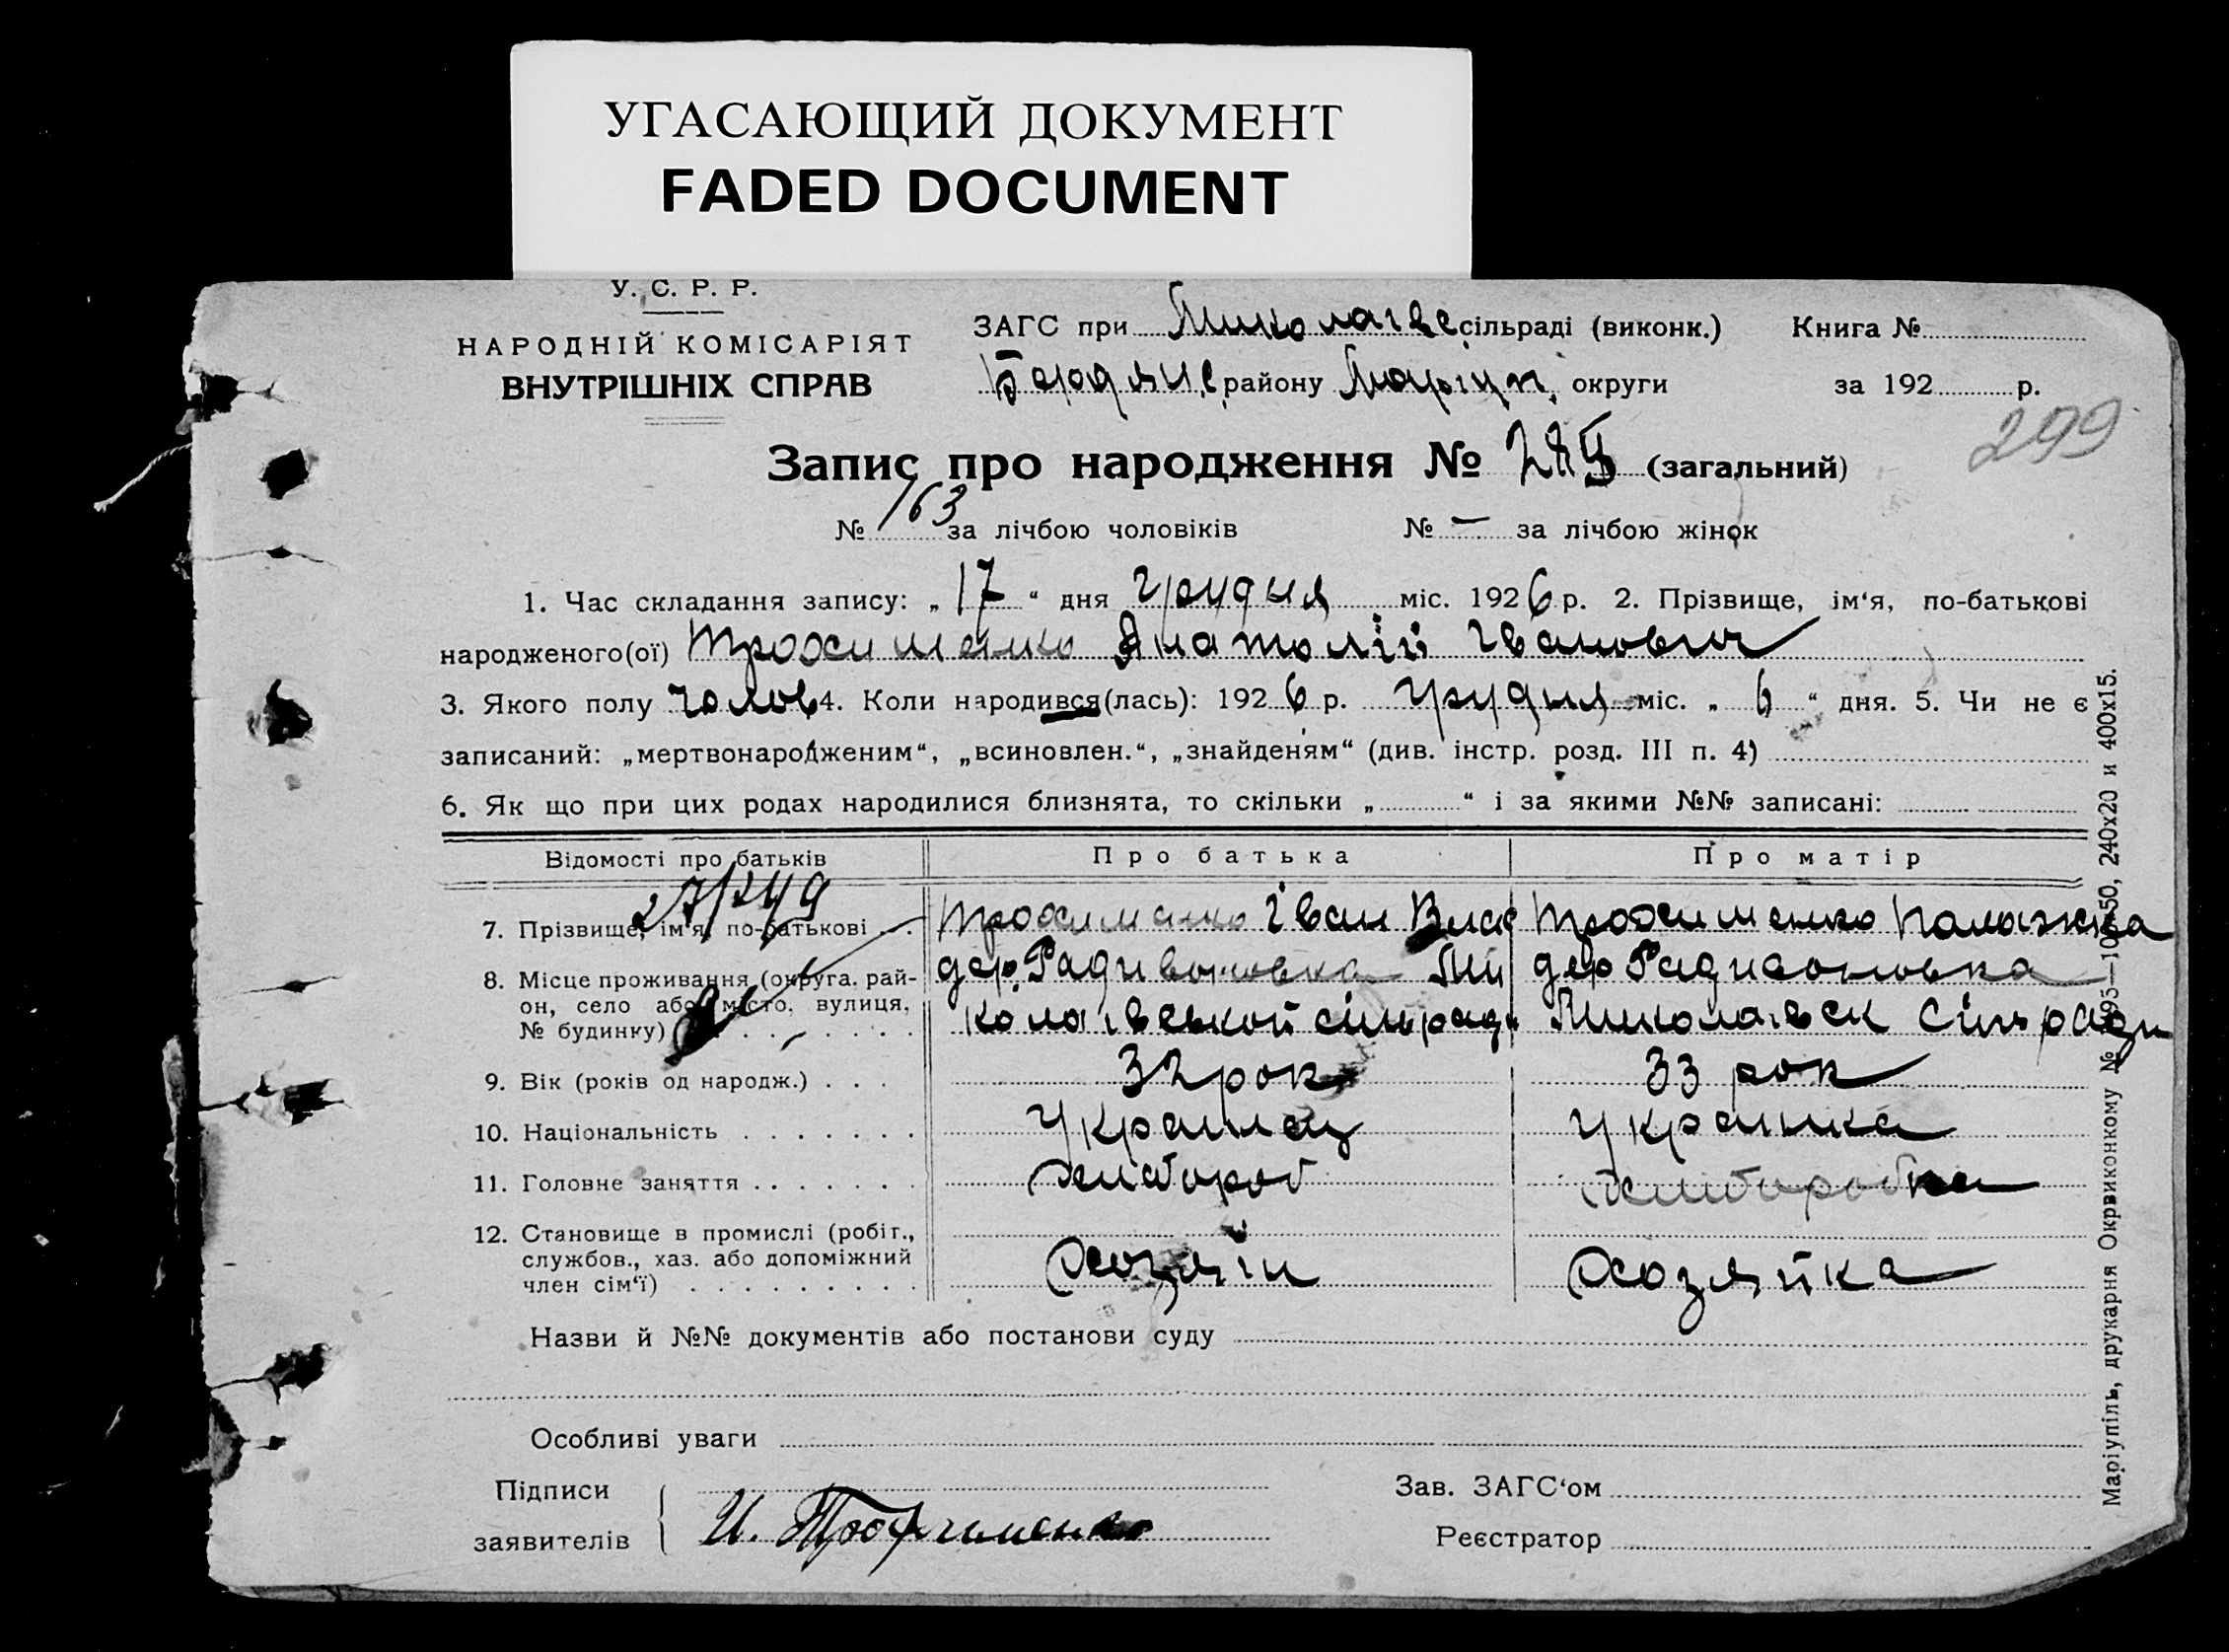 УГАСАЮЩИЙ ДОКУМЕНТ
FADED DOCUMENT
У. С. Р. Р.
НАРОДНІЙ КОМІСАРІЯТ
ВНУТРІШНІХ СПРАВ
ЗАГС при Миколаївс сільраді (виконк.) Книга №
району Маріуп. округи за 192 р.
299
Запис про народження № 285 (загальний)
№ 163 за лічбою чоловіків № — за лічбою жінок
1. Час складання запису: „17“ дня грудня міс. 1926 р. 2. Прізвище, ім‘я, по-батькові
народженого(ої) Трохименко Анатолій Іванович
3. Якого полу чолов 4. Коли народився(лась): 1926 р. грудня міс. „6“ дня. 5. Чи не є
записаний: „мертвонародженим“, „всиновлен.“, „знайденям“ (див. інстр. розд. III п. 4)
6. Як що при цих родах народилися близнята, то скільки „ “ і за якими №№ записані:
Відомості про батьків Про батька Про матір
7. Прізвище, ім‘я, по-батькові . . Трохименко Іван Трохименко Палажка
8. Місце проживання (округа, рай-
он, село або місто, вулиця,
№ будинку) . . . . . . .
дер. Радивоновка Ми дер Радивоновка
колаївськой сільради Миколаївск Сільради
9. Вік (років од народж.) . . . 32 рок 33 рок
10. Національність . . . . . . . Украинец Украинка
11. Головне заняття . . . . . . . хлибороб хлиборобка
12. Становище в промислі (робіт.,
службов., хаз. або допоміжний
член сім‘ї) . . . . . . . . . Хозяін Хозяйка
Назви й №№ документів або постанови суду
Особливі уваги
Підписи
заявителів И. Трофименко
Зав. ЗАГС‘ом
Реєстратор
Маріупіль, друкарня Окрвиконкому 240х20 и 400х15.